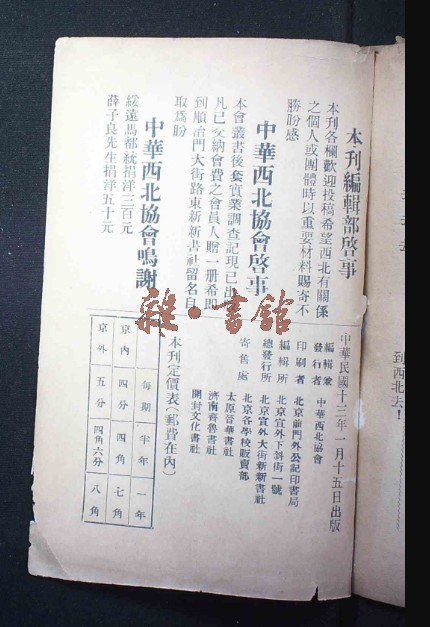 本刊編輯部啓事
本刊各欄歡迎投稿希望西北有關係
之個人或團體時以重要材料賜寄不
勝盼感
中華西北協會啓事
本會叢書後套實業調查記現已出
凡已交納會費之會員人贈一册希即
到順治門大街路東新新書社留名自
取爲盼
中華西北協會鳴謝
綏遠馬都統捐洋三百元
薛子良先生捐洋五十元
中華民國十三年一月十五日出版
編輯兼發行者 中華西北協會
印刷者 北京前門外公記印書局
編輯所 北京宣外下斜街一號
總發行所 北京宣外大街新新書社
寄售處 北京各學校販賣部
太原晉華書社
濟南齊魯書社
開封文化書社
本刊定價表(郵費在內)
每期 半年 一年
京內 四分 四角 七角
京外 五分 四角六分 八角
到西北去!
雜·書館